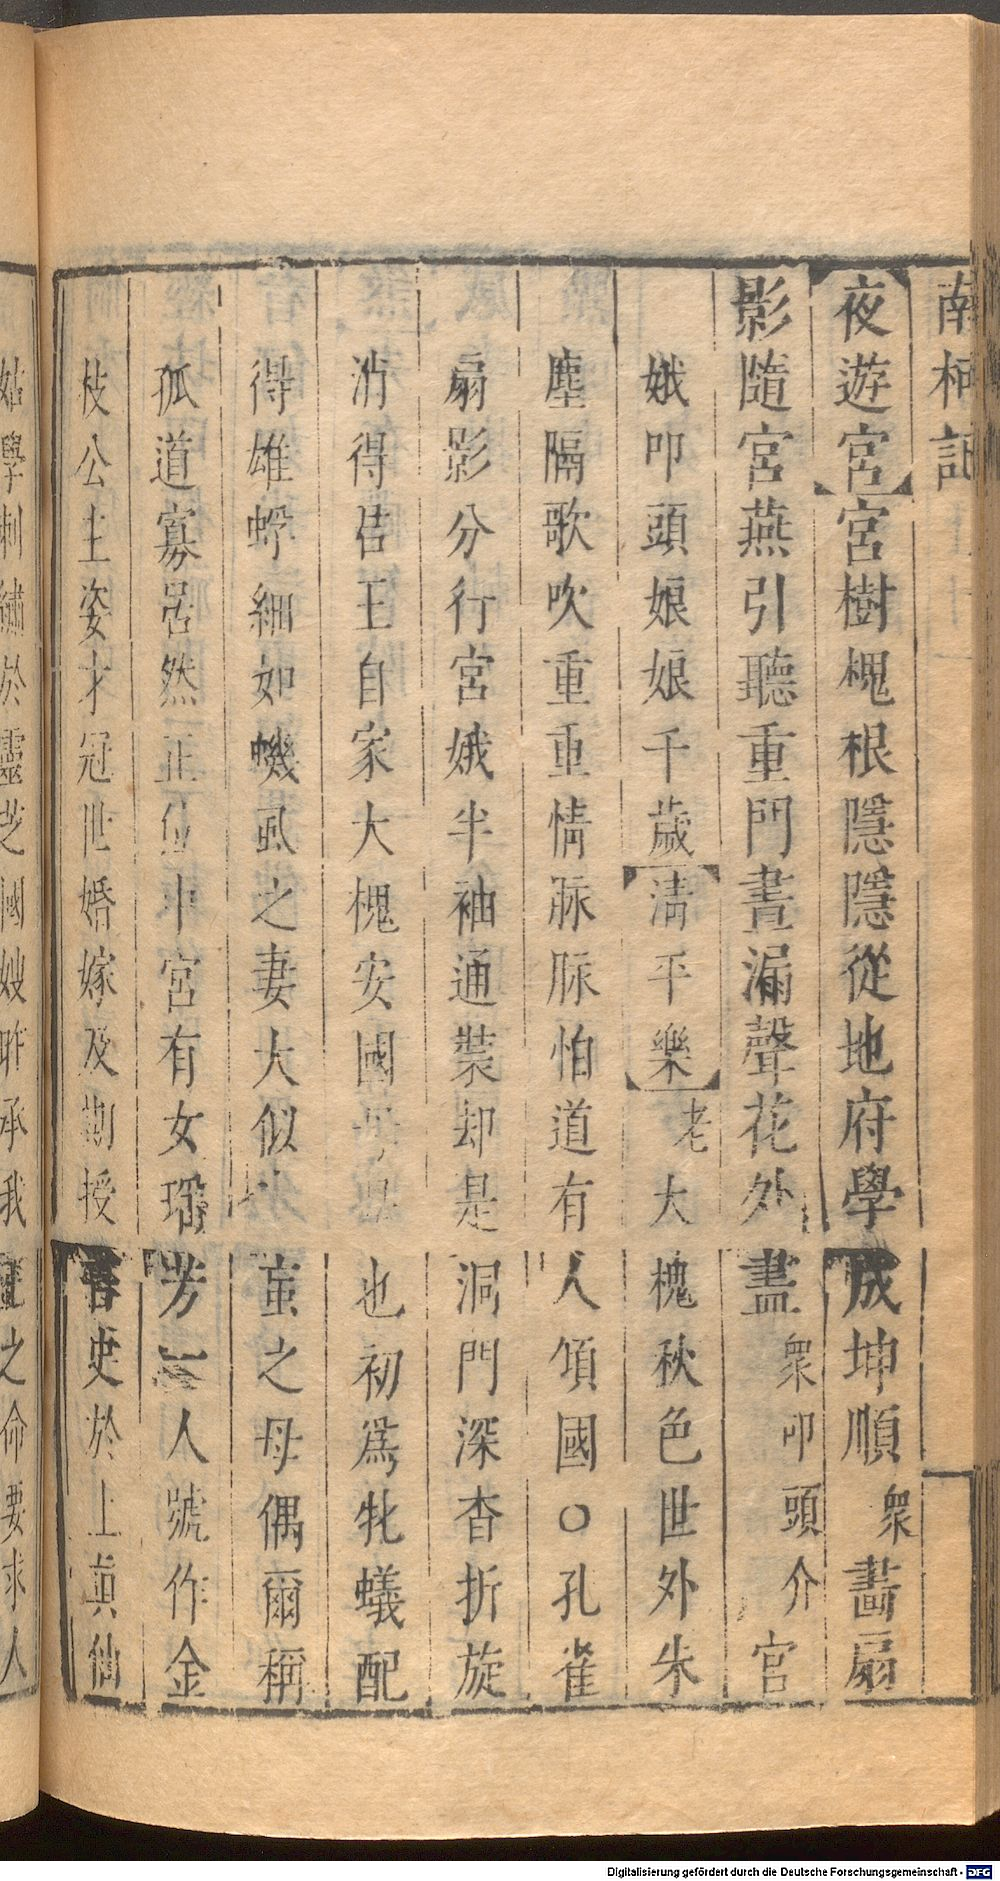 南柯記
夜遊宮宮樹槐根隱隱從地府學成坤順衆畵扇
影隨宮燕引聽重門晝漏聲花外盡衆叩頭介宮
娥叩頭娘娘千歲清平樂老大槐秋色世外朱
塵隔歌吹重重情脉脉怕道有人傾國〇孔雀
扇影分行宮娥半袖通裝却是洞門深杳折旋
消得君王自家大槐安國母是也初爲牝蟻配
得雄蜉細如蟣虱之妻大似蚍䖟之母偶爾稱
孤道寡居然正位中宮有女瑤芳一人號作金
枝公主姿才冠世婚嫁及期授書史於上眞仙
姑學刺繡於靈芝國嫂昨承我王之命要求人
Digitalisierung gefördert durch die Deutsche Forschungsgemeinschaft - DFG